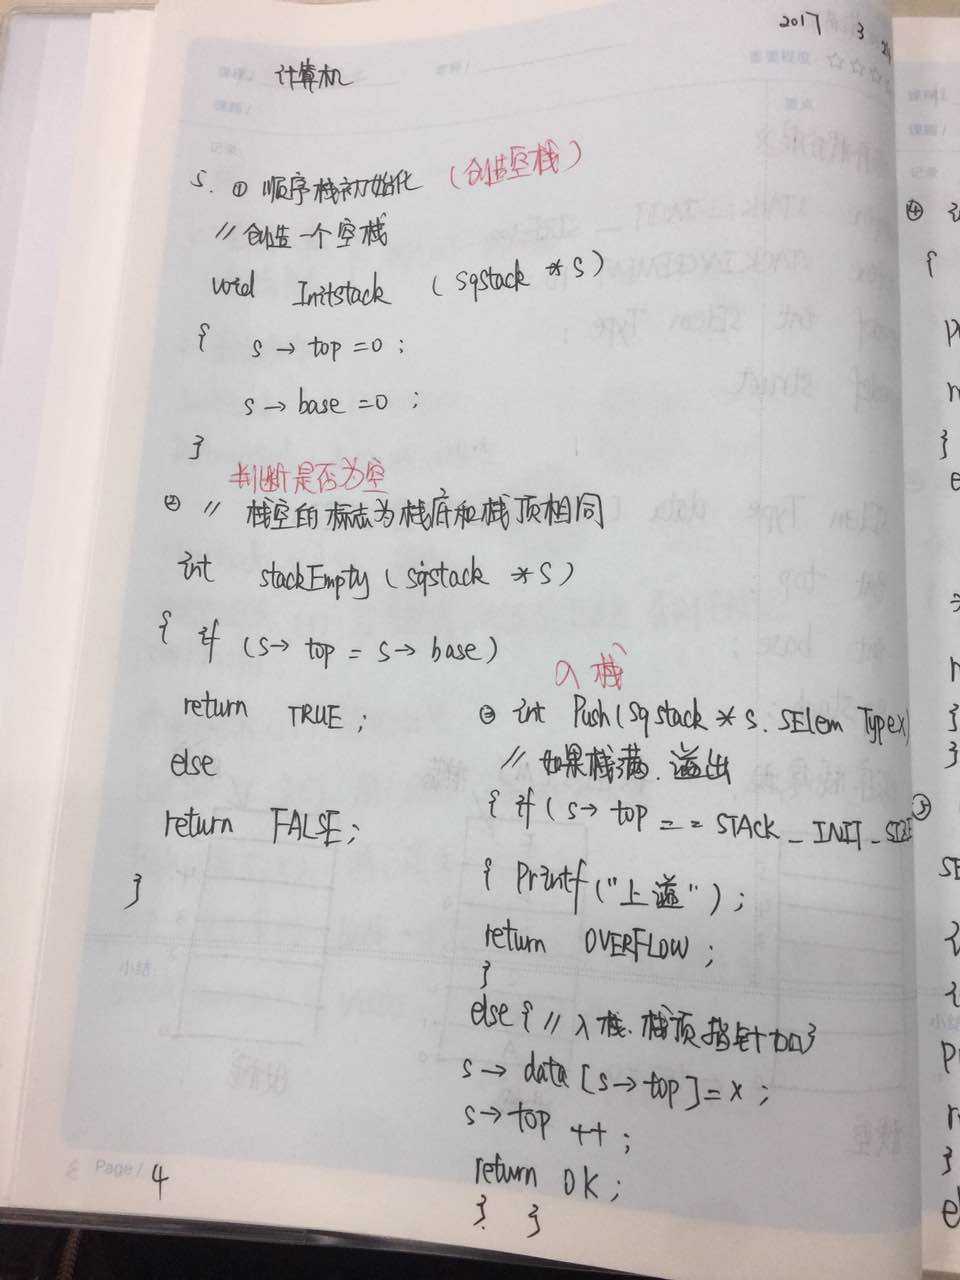 2017 3
课程/ 计算机
章节/
重要程度 ☆☆☆☆
课题/
重点
记录
5. ① 顺序栈初始化 (创造空栈)
// 创造一个空栈
void Initstack (sqstack *s)
{ s→top=0;
s→base=0;
}
判断是否为空
② // 栈空的标志为栈底和栈顶相同
int stackEmpty (sqstack *s)
{ if (s→top = s→base)
return TRUE;
else
return FALSE;
}
入栈
③ int Push(sqstack * s. SElem Type x)
// 如果栈满.溢出
{ if( s→top == STACK_INIT_SIZE
{ Printf("上溢");
return OVERFLOW;
}
else{ // 入栈.栈顶指针加1
s→data[s→top]=x;
s→top ++;
return OK;
} }
小结
Page/ 4
课题/
记录
④
{
}
⑤
SE
{
{
小结
}
el